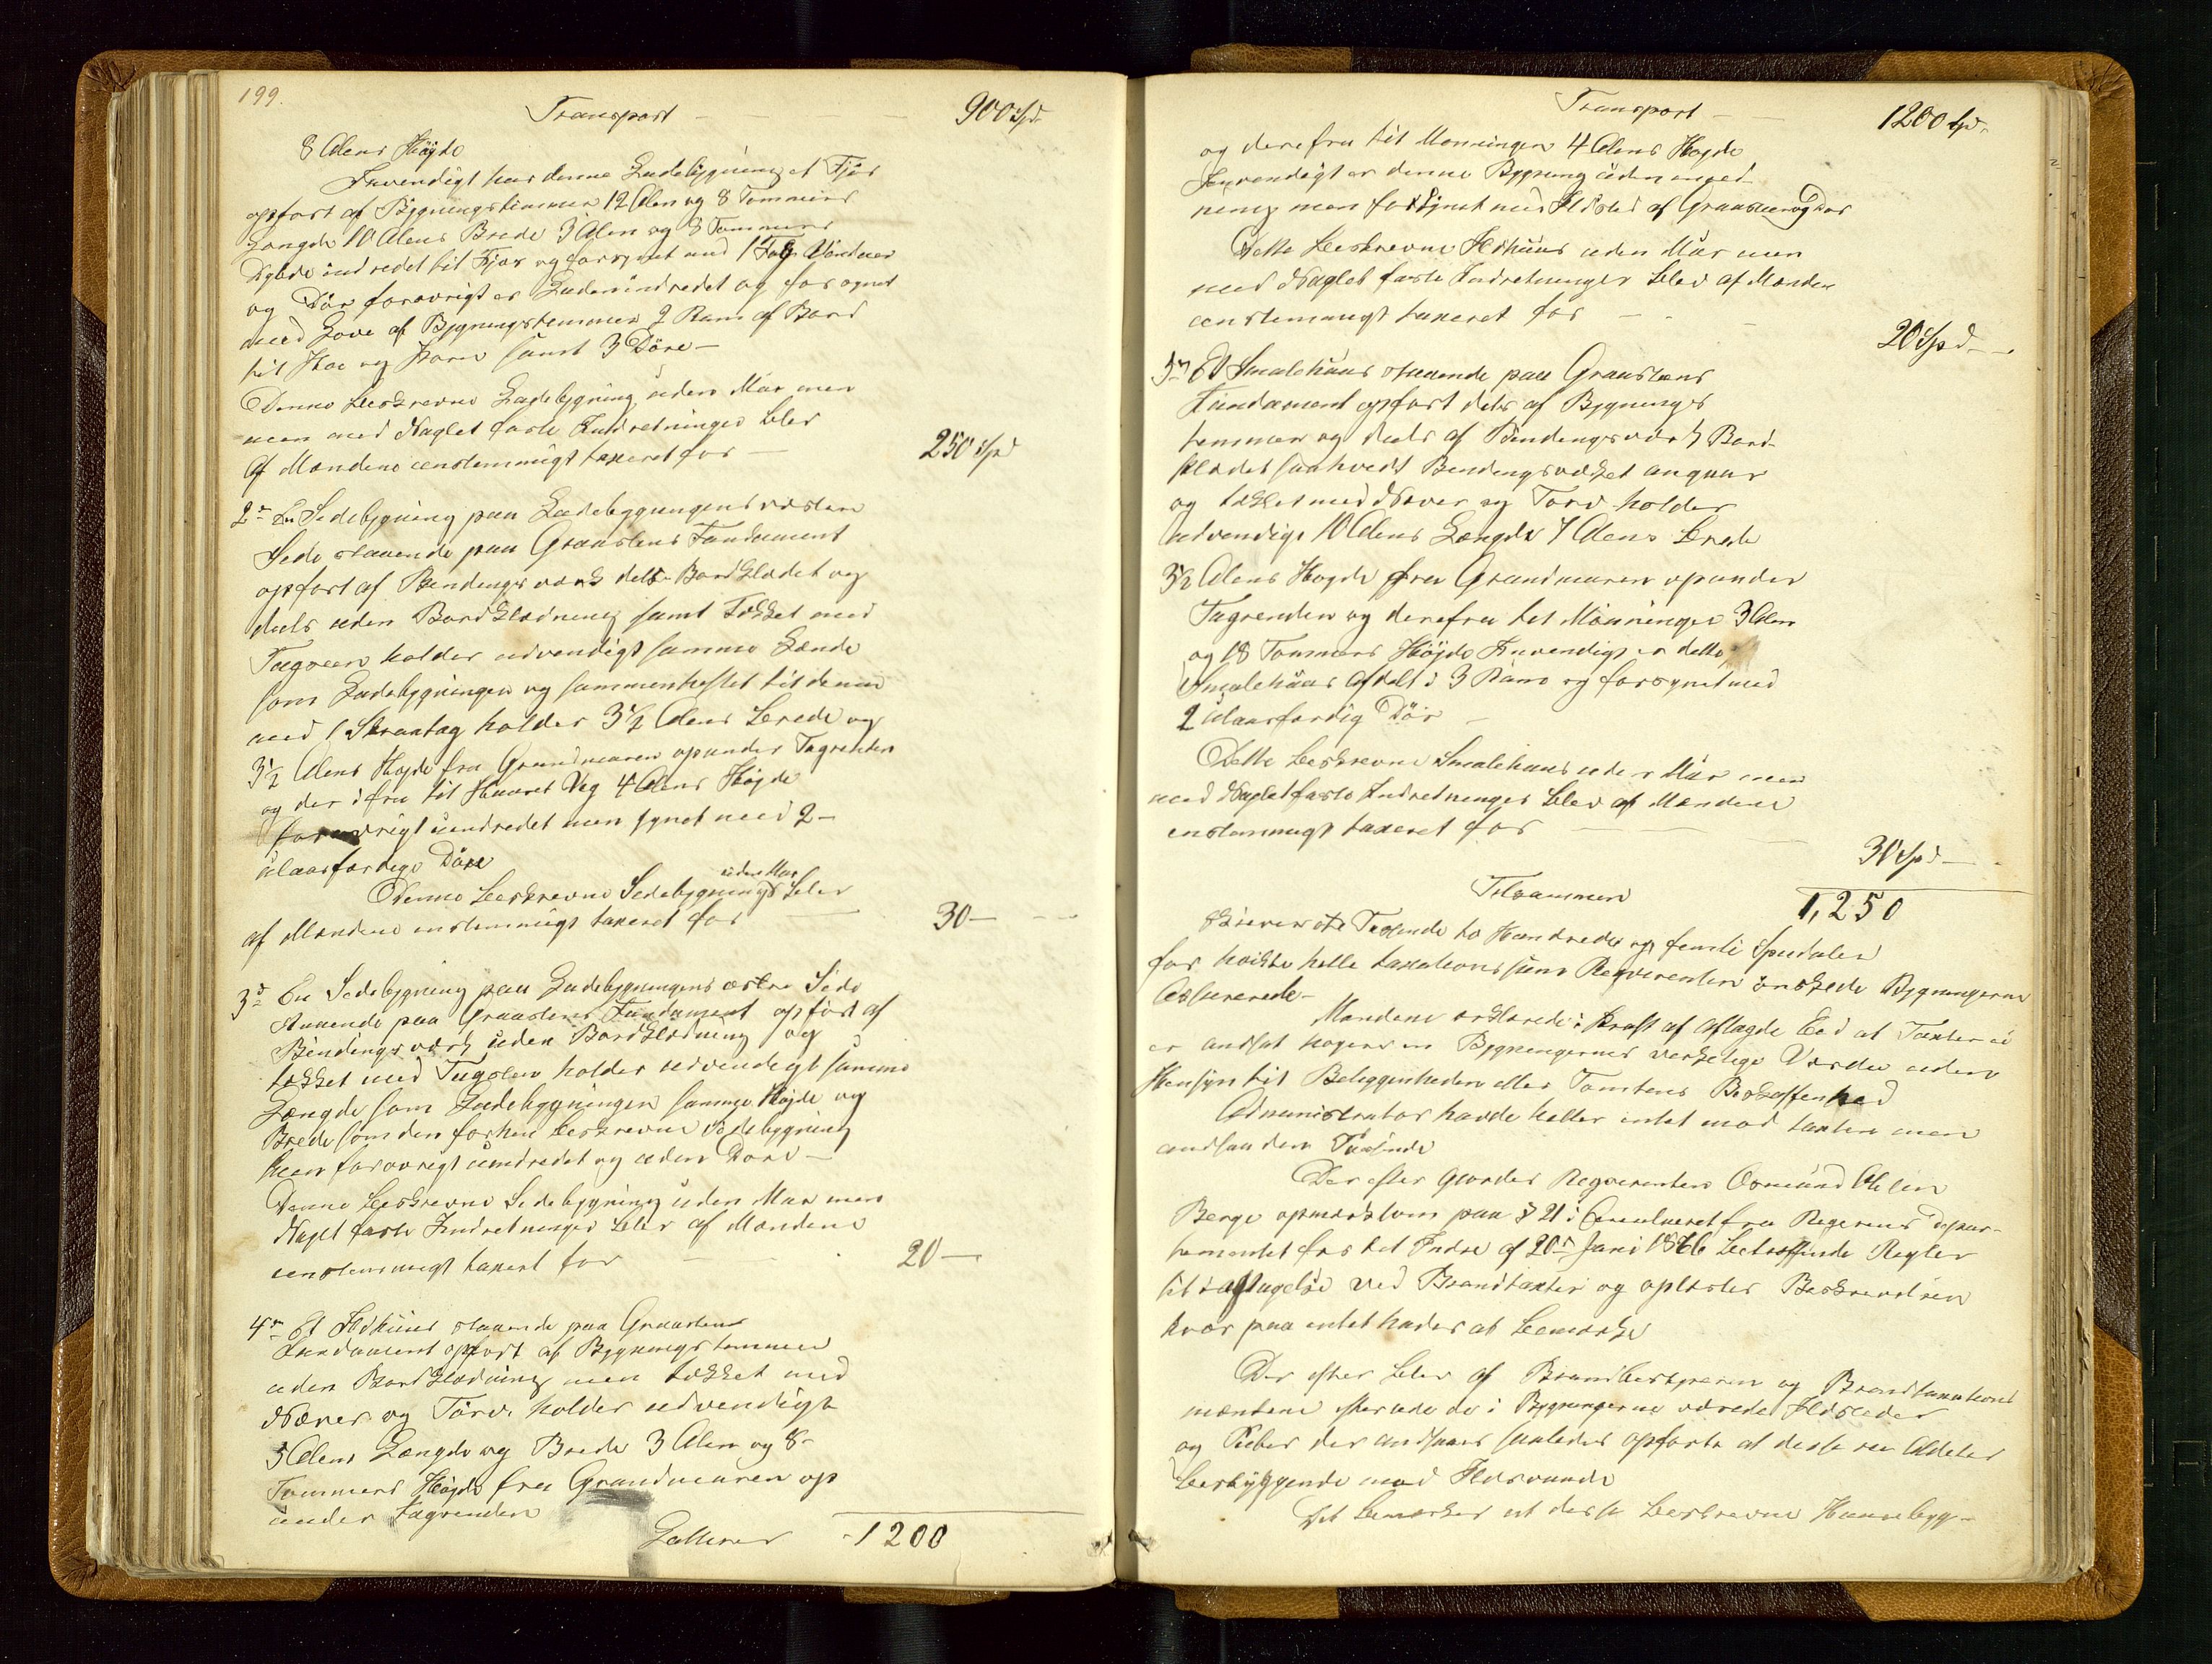 199.
Transport — — — 900 Spd
8 Alens Høyde
Invendigt har denne Ladebygning et Fjøs
opført af Bygningstømmer 12 Alen og 8 Tommers
Længde 10 Alens Brede 3 Alen og 8 Tommers
Dybde indredet til Fjøs og forsynet med 1 Fag Vinduer
og Dør forøvrigt er Laden indredet og forsynet
med Love af Bygningstømmer 2 Rum af Bord
til Hø og Korn samt 3 Døre —
Denne beskrevne Ladebygning uden Mur men
men med Naglet faste Indretninger blev
af Mændene eenstemmigt taxeret for — 250 Spd
2n En Sidebygning paa Ladebygningens vestre
Side staaende paa Graastens Fundament
opført af Bindingsværk dels Bordklædet og
deels uden Bordklædning samt Tækket med
Tagsteen holder udvendigt samme Længde
som Ladebygningen og sammenheftet til denne
med 1 Skraatag holder 3½ Alens Brede og
3½ Alens Høyde fra Grundmuren opunder Tagrenden
og der ifra til Huuset Væg 4 Alens Høyde
forøvrigt uindredet men synet med 2 —
ulaasfærdige Døre
Denne beskrevne Sidebygning uden Mur blev
af Mændene enstemmigt taxeret for — 30 —
3d En Sidebygning paa Ladebygningens østre Side
staaende paa Graastens Fundament opført af
Bindingsværk uden Bordklædning og
tækket med Tagsten holder udvendigt samme
Længde som Ladebygningen samme Høyde og
Brede som den forhen beskrevne Sidebygning
men forøvrigt uindredet og uden Døre —
Denne beskrevne Sidebygning uden Mur men
Naglet faste Indretninger blev af Mændene
eenstemmigt taxert for — 20 —
4n Et Ildhuus staaende paa Graastens
Fundament opført af Bygningstømmer
uden Bordklædning men tækket med
Næver og Törv. holder udvendigt
5 Alens Længde og Brede 3 Alen og 8
Tommers Høyde fra Grundmuren op
under Tagrenden
Latteres 1200
Transport — — 1200 Spd
og derefra til Mønningen 4 Alens Høyde
Invendigt er denne Bygning uden indred
ning men forsynet med Ildsted af Graasteen og Dør
Dette beskrevne Ildhuus uden Mur men
med Naglet faste Indretninger blev af Mænden
eenstemmigt taxeret for — — 20 Spd —
5n Et Smalehuus staaende paa Graastens
Fundament opført dels af Bygnings
tømmer og deels af Bindingsværk Bord
klædet saahvedt Bindingsværket angaar
og tækket med Næver og Torv holder
udvendigt 10 Alens Længde 7 Alens Brede
3½ Alens Høyde fra Grundmuren opunder
Tagrenden og derefra til Mønningen 3 Alen
og 18 Tommers Høyde Invendigt er dette
Smalehuus afdelt i 3 Rum og forsynet med
2 ulaasfærdig Dör —
Dette beskrevne Smalehuus uden Mur men
med Nagletfaste Indretninger blev af Mændene
enstemmigt taxeret for — — 30 Spd —
Tilsammen 1,250
skriver et Tusinde to Hundrede og femti Spesidaler
for hvilke hele taxationssum Reqvirenten önskede Bygningerne
Assurerede —
Mændene erklærede i Kraft af aflagde Eed at Taxten ei
er andsat høyere en Bygningernes virkelige Værdie uden
Hensyn til Beliggenheden eller Tomtens Beskaffenhed
Administrator havde heller intet mod taxten men
andsaa den
Der efter gjordes Reqvirenten Osmund Olsen
Berge opmærksom paa § 21 i Circulæret fra Regjerings Depar-
tementet for det Indre af 20n Juni 1846 betræffende Regler
til iagttagelse ved Brandtaxter og oplæstes Beskrivelsen
hvor paa intet hades at bemærke
Der efter blev af Brandbestyreren og Brandtaxations
mændene efterseede de i Bygningerne værede Ildsteder
og Piber der andsaaes saaledes opførte at disse ere Aldeles
betryggende mod Ildsvaade
Det bemærkes at disse beskrevne Huusebyg-